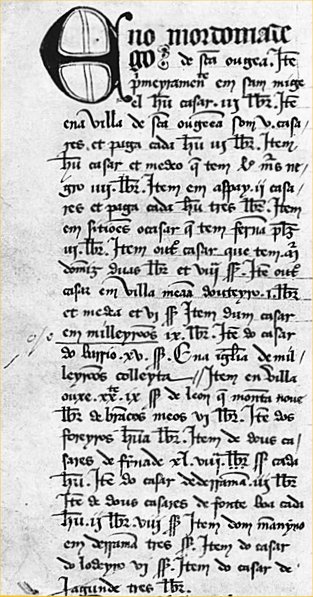 E no mordomade
go de sta ougea. Ite
pmeyramente em sam mige
el hu casar. iii lbr. Ite
ena villa de sta ougeea som v. casa
res. et paga cada hu vii lbr. Item
hu casar et medeo q tem ms ne
gro iiii. lbr. Item em aspay. ii casa
res et paga cada hu tres lbr. Item
em sitiões ocasar q tem ferna
vi. lbr. Item out casar que tem
domiz duas lbr et viii ss. Ite out
casar em villa meaa douteyro. i. lbr
et medea et vi ss. Item dum casar
em milleyroos ix. lbr. Ite do casar
do bayrio. xv. ss. Ena iglia de mil
leyroos colleyta Item en villa
ouxe. xx. ix ss de leon q monta noue
lbr de bracos meos vi lbr. Ite dos
foreyros hua lbr. Item de dous ca
sares de fnade xl. viii. lbr ss cada
hu. Ite do casar dederrama. iii lbr
Ite de dous casares de fonte boa cada
hu. ii lbr. viii ss Item dom manyno
em derrama tres ss. Item do casar
do lodeyro vi ss. Item do casar de
Jagunde tres lbr.